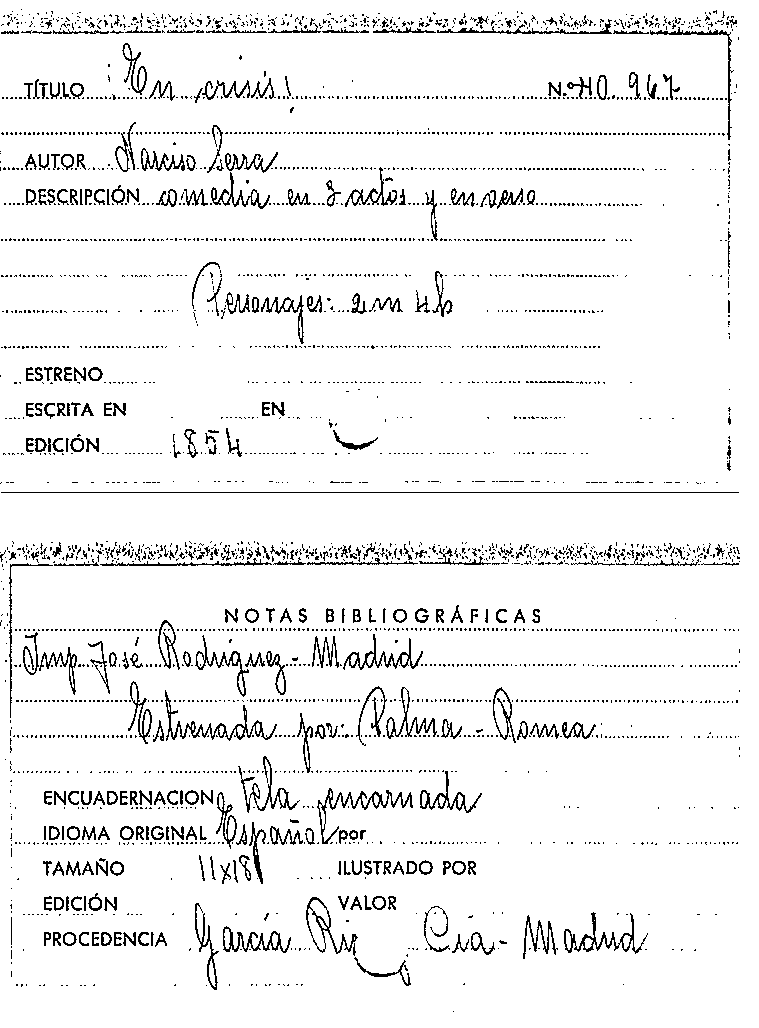 TÍTULO ¡En crisis! N.º 40.967
AUTOR Narciso Serra
DESCRIPCIÓN comedia en 3 actos y en verso
Personajes: 2 m 4 h
ESTRENO
ESCRITA EN EN
EDICIÓN 1854
NOTAS BIBLIOGRÁFICAS
Imp. José Rodriguez - Madrid
Estrenada por: Palma - Romea
ENCUADERNACION tela encarnada
IDIOMA ORIGINAL Español por
TAMAÑO 11x18 ILUSTRADO POR
EDICIÓN VALOR
PROCEDENCIA García Ric Cia - Madrid